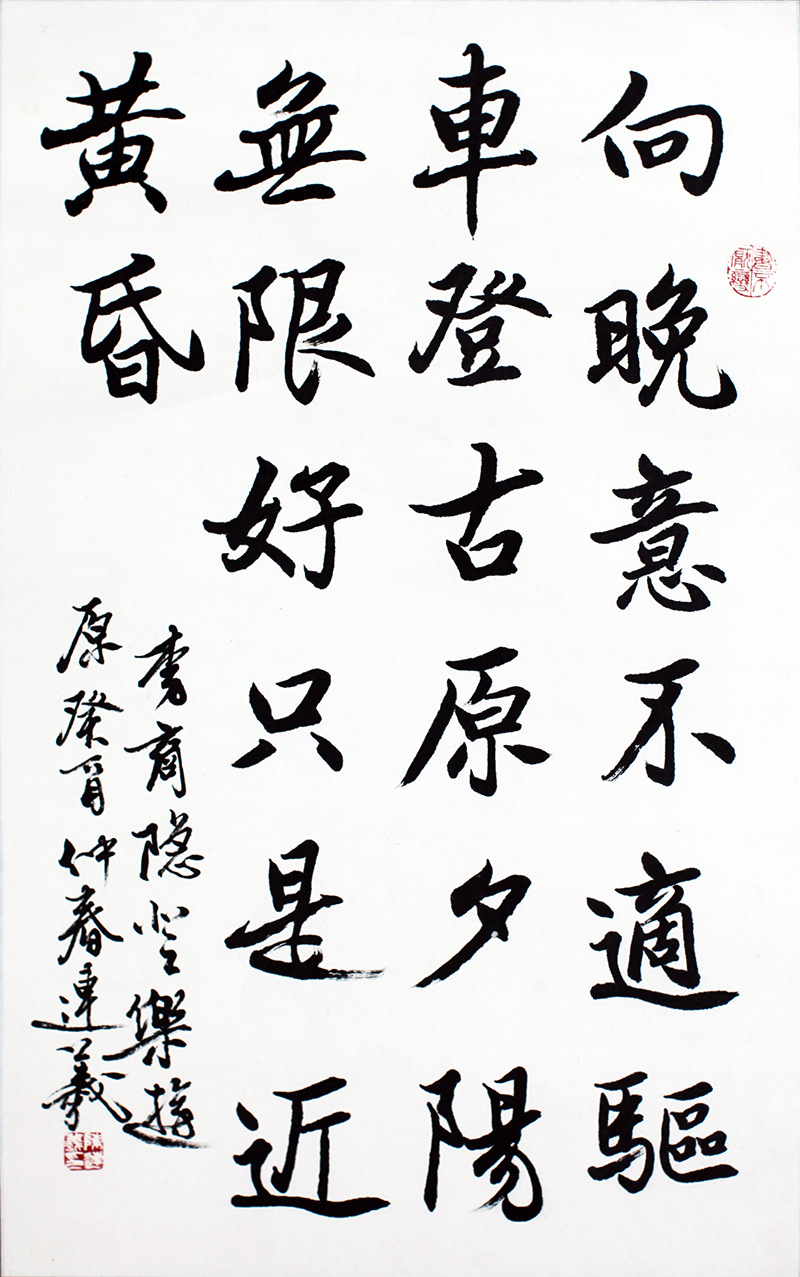 向晚意不適驅
車登古原夕陽
無限好只是近
黄昏
李商隐登樂遊
原癸酉仲春